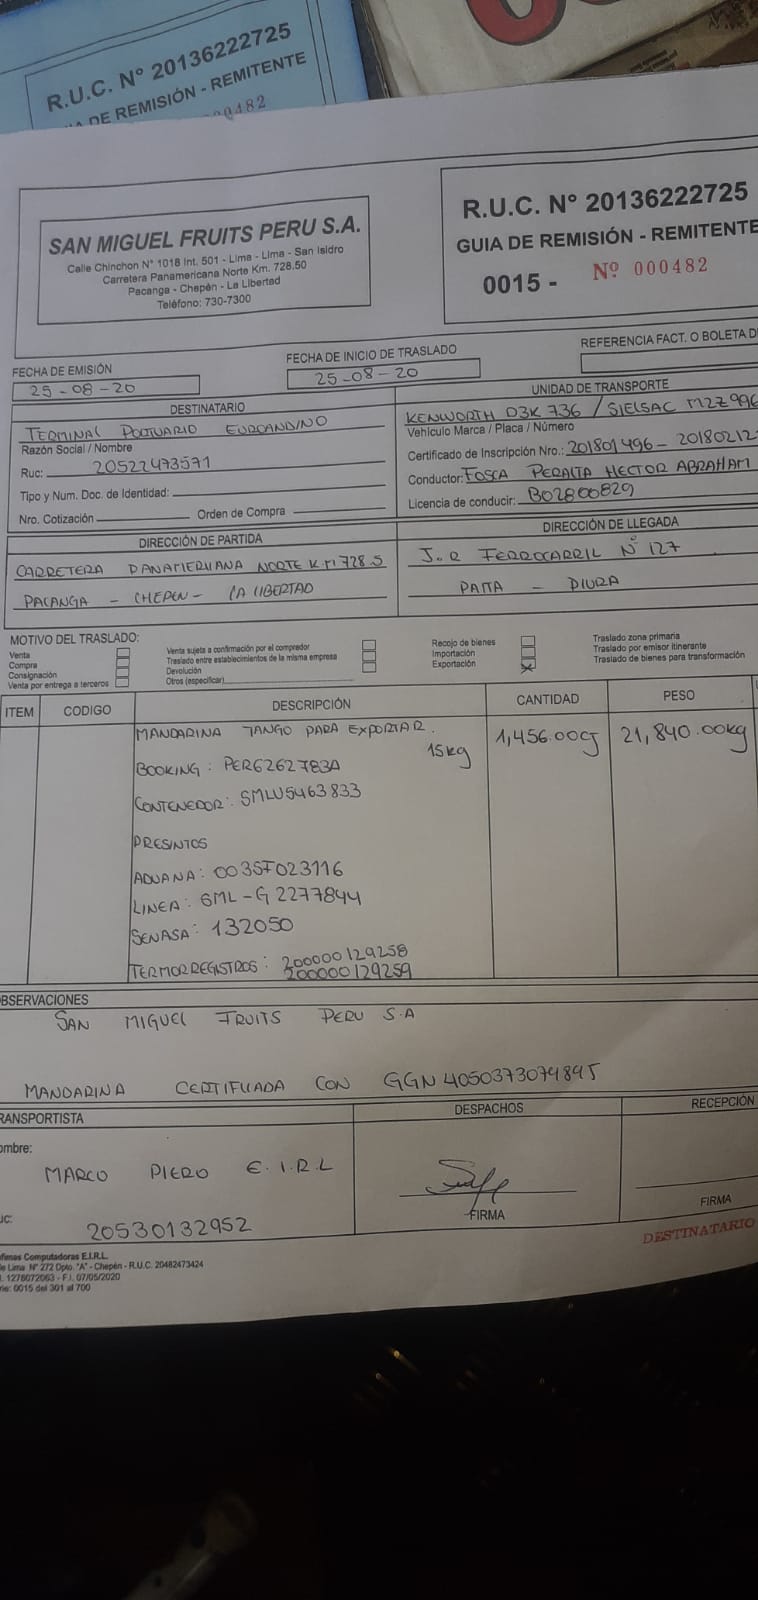 R.U.C. N° 20136222725
DE REMISIÓN - REMITENTE
SAN MIGUEL FRUITS PERU S.A.
Calle Chinchon N° 1018 Int. 501 - Lima - Lima - San Isidro
Carretera Panamericana Norte Km. 728.50
Pacanga - Chepén - La Libertad
Teléfono: 730-7300
R.U.C. N° 20136222725
GUIA DE REMISIÓN - REMITENTE
0015 - Nº 000482
FECHA DE EMISIÓN
25-08-20
FECHA DE INICIO DE TRASLADO
25-08-20
REFERENCIA FACT. O BOLETA
DESTINATARIO
TERMINAL PORTUARIO EUROANDINO
Razón Social / Nombre
Ruc: 20522473571
Tipo y Num. Doc. de Identidad:
Nro. Cotización Orden de Compra
UNIDAD DE TRANSPORTE
KENWORTH D3K 736 / SIELSAC M2Z996
Vehículo Marca / Placa / Número
Certificado de Inscripción Nro.: 201801496 - 20180212
Conductor: FOSCA PERALTA HECTOR ABRAHAM
Licencia de conducir: B02800829
DIRECCIÓN DE PARTIDA
CARRETERA PANAMERICANA NORTE KM 728.5
PACANGA - CHEPEN - LA LIBERTAD
DIRECCIÓN DE LLEGADA
J.R FERROCARRIL Nº 127
PAITA - PIURA
MOTIVO DEL TRASLADO:
Venta
Compra
Consignación
Venta por entrega a terceros
Venta sujeta a confirmación por el comprador
Traslado entre establecimientos de la misma empresa
Devolución
Otros (especificar)
Recojo de bienes
Importación
Exportación X
Traslado zona primaria
Traslado por emisor itinerante
Traslado de bienes para transformación
ITEM CODIGO DESCRIPCIÓN CANTIDAD PESO
MANDARINA TANGO PARA EXPORTAR. 1,456.00CJ 21,840.00kg
15kg
BOOKING: PER6262783A
CONTENEDOR: SMLU5463833
PRESINTOS
ADUANA: 0035F023116
LINEA: SML-G2277844
SENASA: 132050
TERMORREGISTROS: 200000129258
200000129259
OBSERVACIONES
SAN MIGUEL FRUITS PERU S.A
MANDARINA CERTIFICADA CON GGN 4050373079895
TRANSPORTISTA
DESPACHOS
RECEPCIÓN
MARCO PIERO E.I.R.L
20530132952
FIRMA
FIRMA
DESTINATARIO
Computadoras E.I.R.L.
Lima Nº 272 Dpto. "A" - Chepén - R.U.C. 20482473424
1278072063 - F.I. 07/05/2020
0015 del 301 al 700